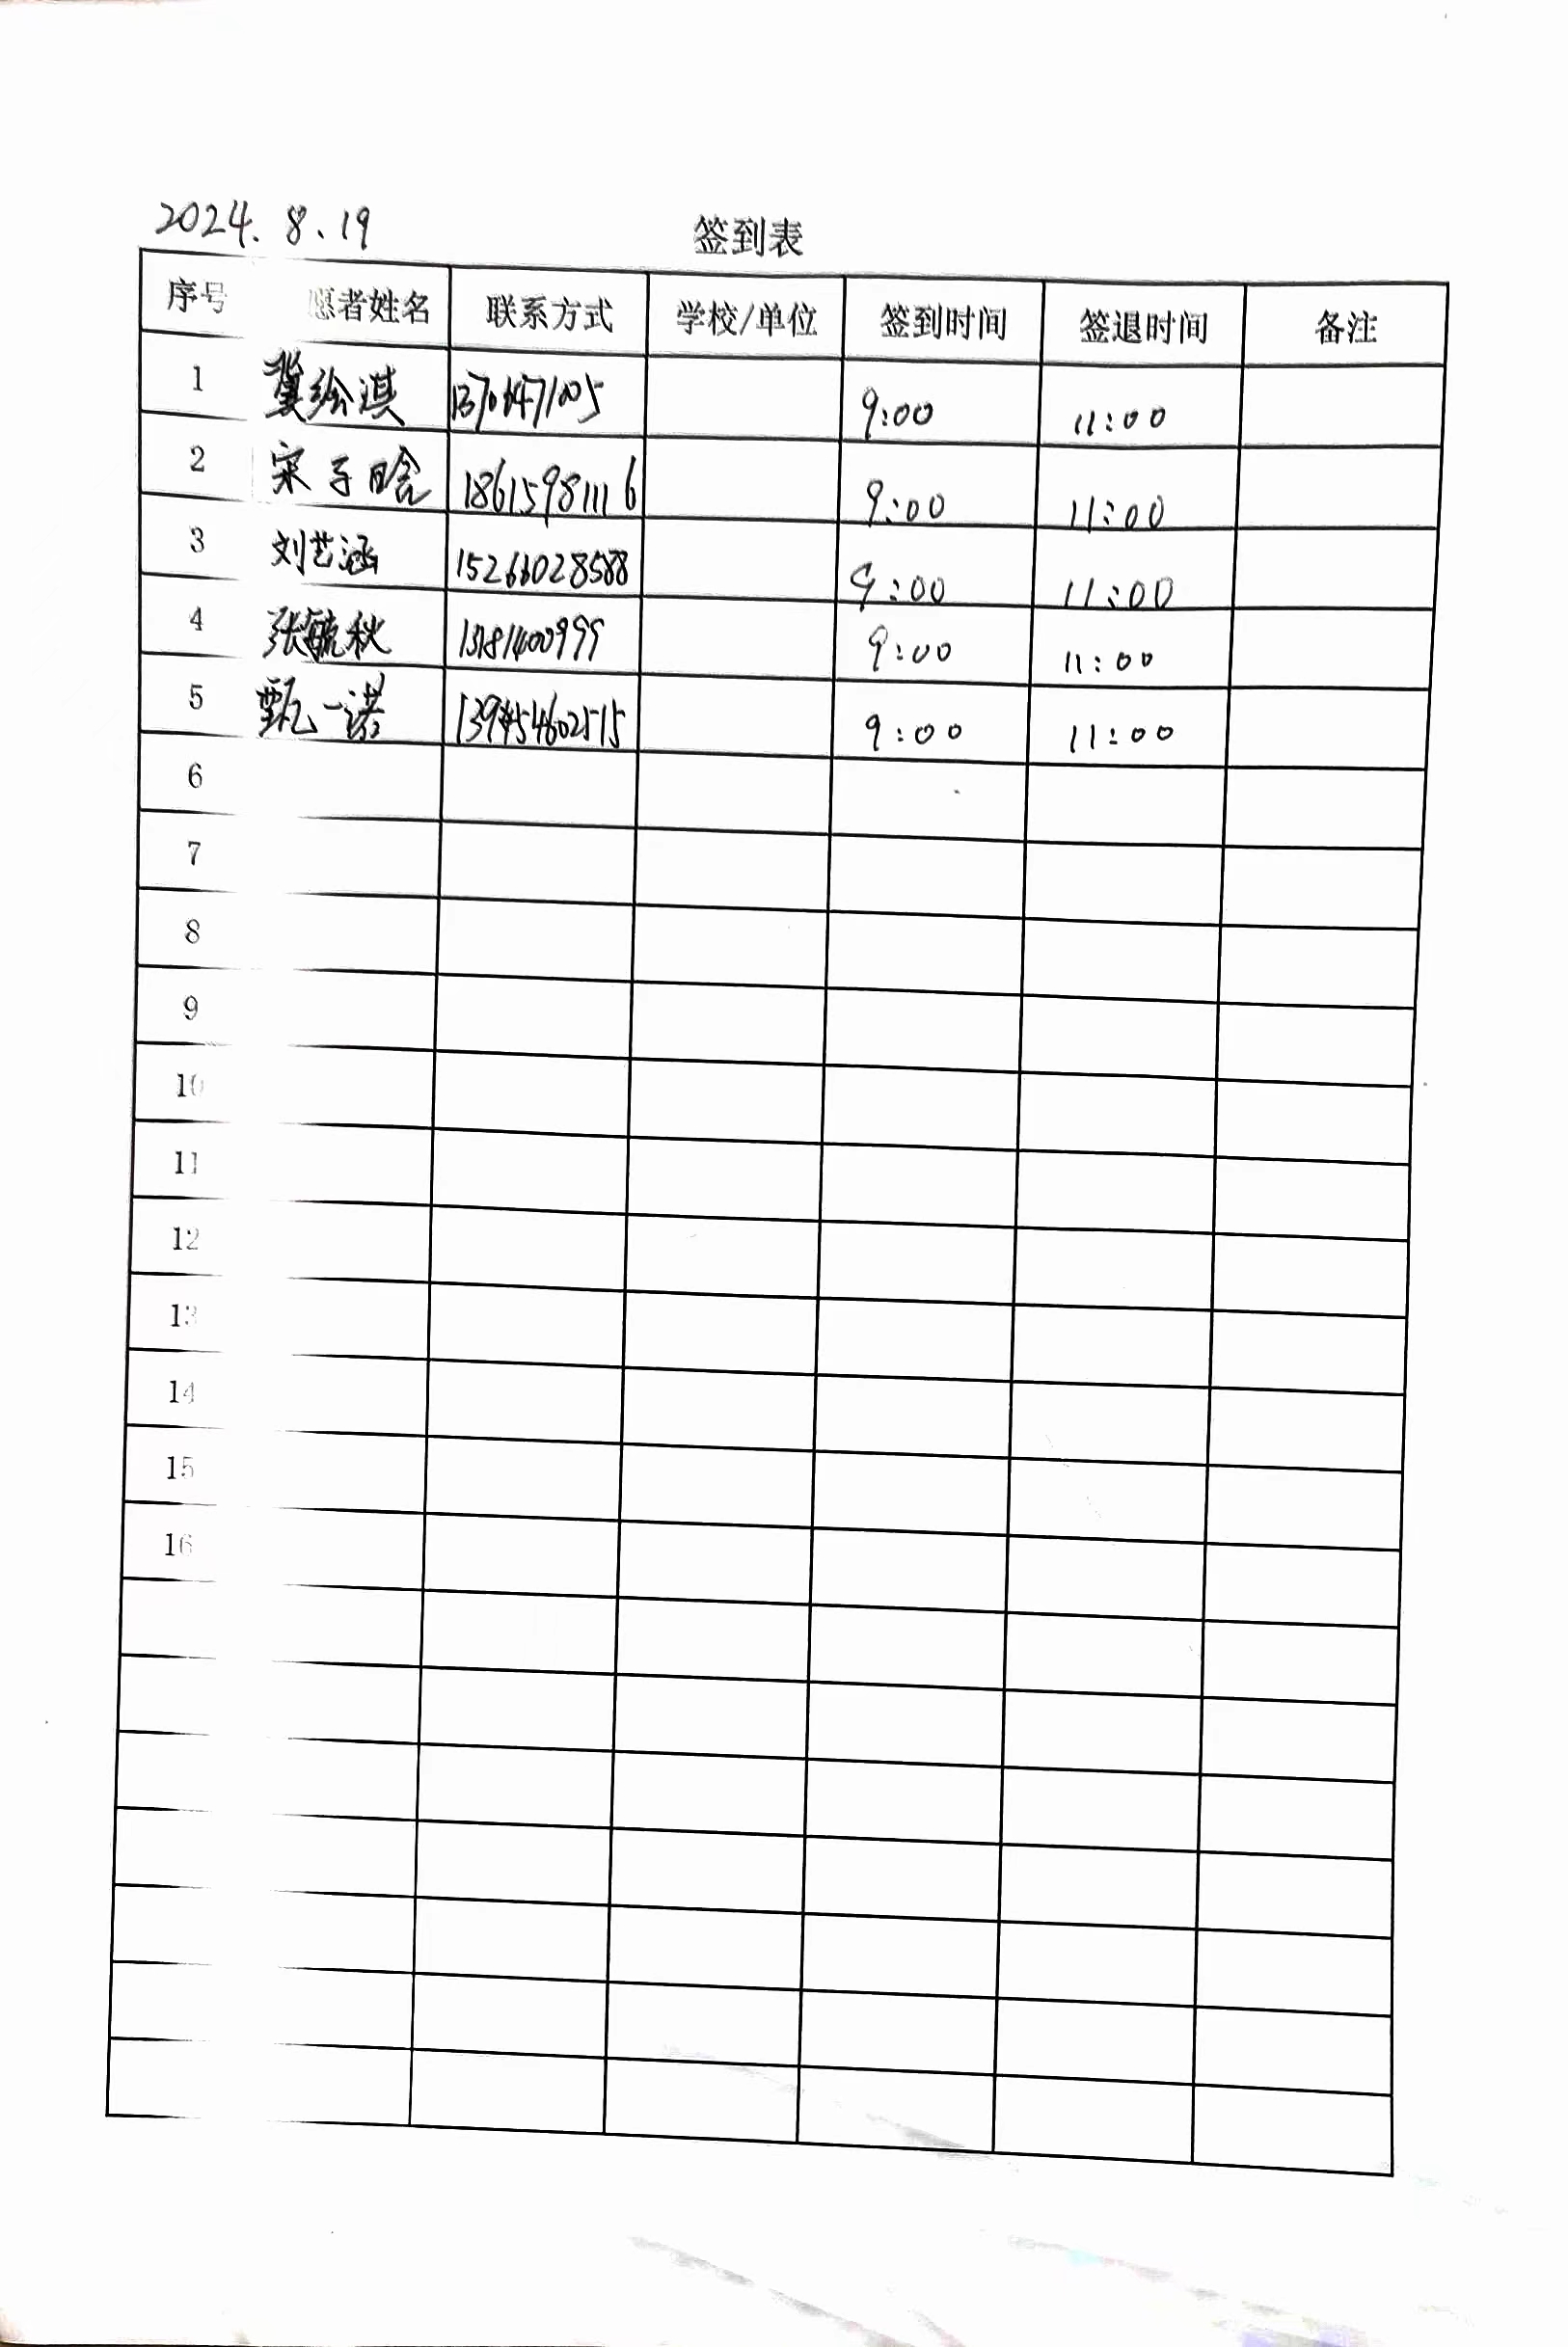 2024.8.19
签到表
序号 愿者姓名 联系方式 学校/单位 签到时间 签退时间 备注
1 冀绘淇 9:00 11:00
2 宋子晗 18615981116 9:00 11:00
3 刘艺涵 15266028588 9:00 11:00
4 张毓秋 13181400999 9:00 11:00
5 甄一诺 9:00 11:00
6
7
8
9
10
11
12
13
14
15
16